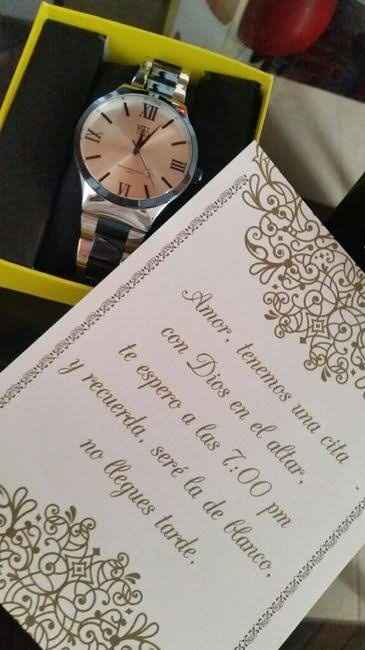 XII
III
VI
IX
Amor, tenemos una cita
con Dios en el altar,
te espero a las 7:00 pm
y recuerda, seré la de blanco,
no llegues tarde.